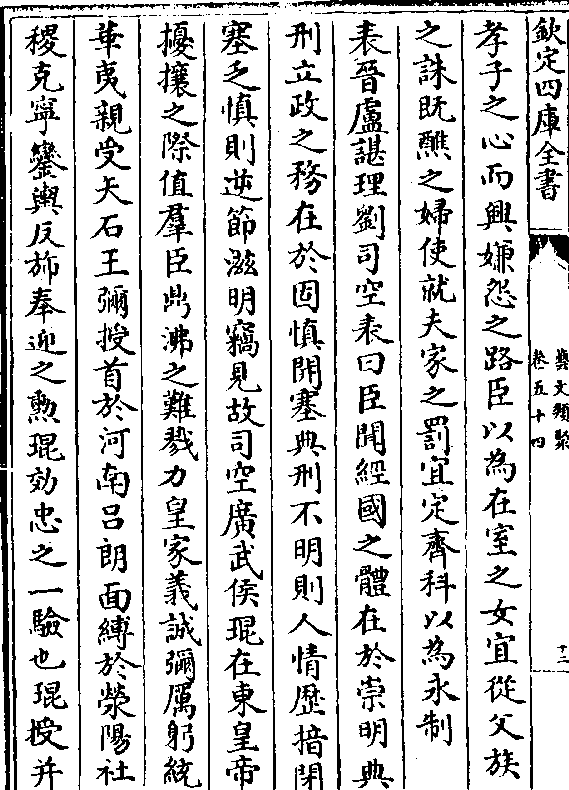 欽定四庫全書
藝文類聚
卷五十四
十二
孝子之心而興嫌怨之路臣以為在室之女宜從父族
之誅既醮之婦使就夫家之罰宜定齊科以為永制
表晉盧諶理劉司空表曰臣聞經國之體在於崇明典
刑立政之務在於固慎關塞典刑不明則人情歷揞閉
塞乏慎則逆節滋明竊見故司空廣武侯琨在東皇帝
擾攘之際值羣臣鼎沸之難戮力皇家義誠彌厲躬統
華夷親受矢石王彌授首於河南呂朗面縛於滎陽社
稷克寧鑾輿反旆奉迎之勲琨効忠之一驗也琨授并